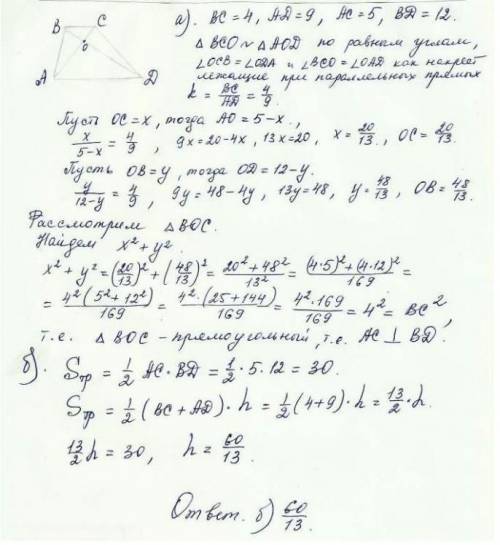 B C
O
A D
а). BC = 4, AD = 9, AC = 5, BD = 12.
△ BCO ~ △ AOD по равным углам,
∠OCB = ∠ODA и ∠BCO = ∠OAD как накрест
лежащие при параллельных прямых
k = BC/AD = 4/9.
Пусть OC = x, тогда AO = 5 - x.,
x/(5-x) = 4/9, 9x = 20 - 4x, 13x = 20, x = 20/13, OC = 20/13.
Пусть OB = y, тогда OD = 12 - y.
y/(12-y) = 4/9, 9y = 48 - 4y, 13y = 48, y = 48/13, OB = 48/13.
Рассмотрим △ BOC.
Найдем x² + y².
x² + y² = (20/13)² + (48/13)² = (20² + 48²)/13² = ((4·5)² + (4·12)²)/169 =
= 4²(5² + 12²)/169 = 4²·(25 + 144)/169 = 4²·169/169 = 4² = BC²,
т.е. △ BOC - прямоугольный, т.е. AC ⊥ BD.
б). Sтр = 1/2 AC · BD = 1/2 · 5 · 12 = 30.
Sтр = 1/2 (BC + AD) · h = 1/2 (4 + 9) · h = 13/2 · h.
13/2 h = 30, h = 60/13.
Ответ. б) 60/13.